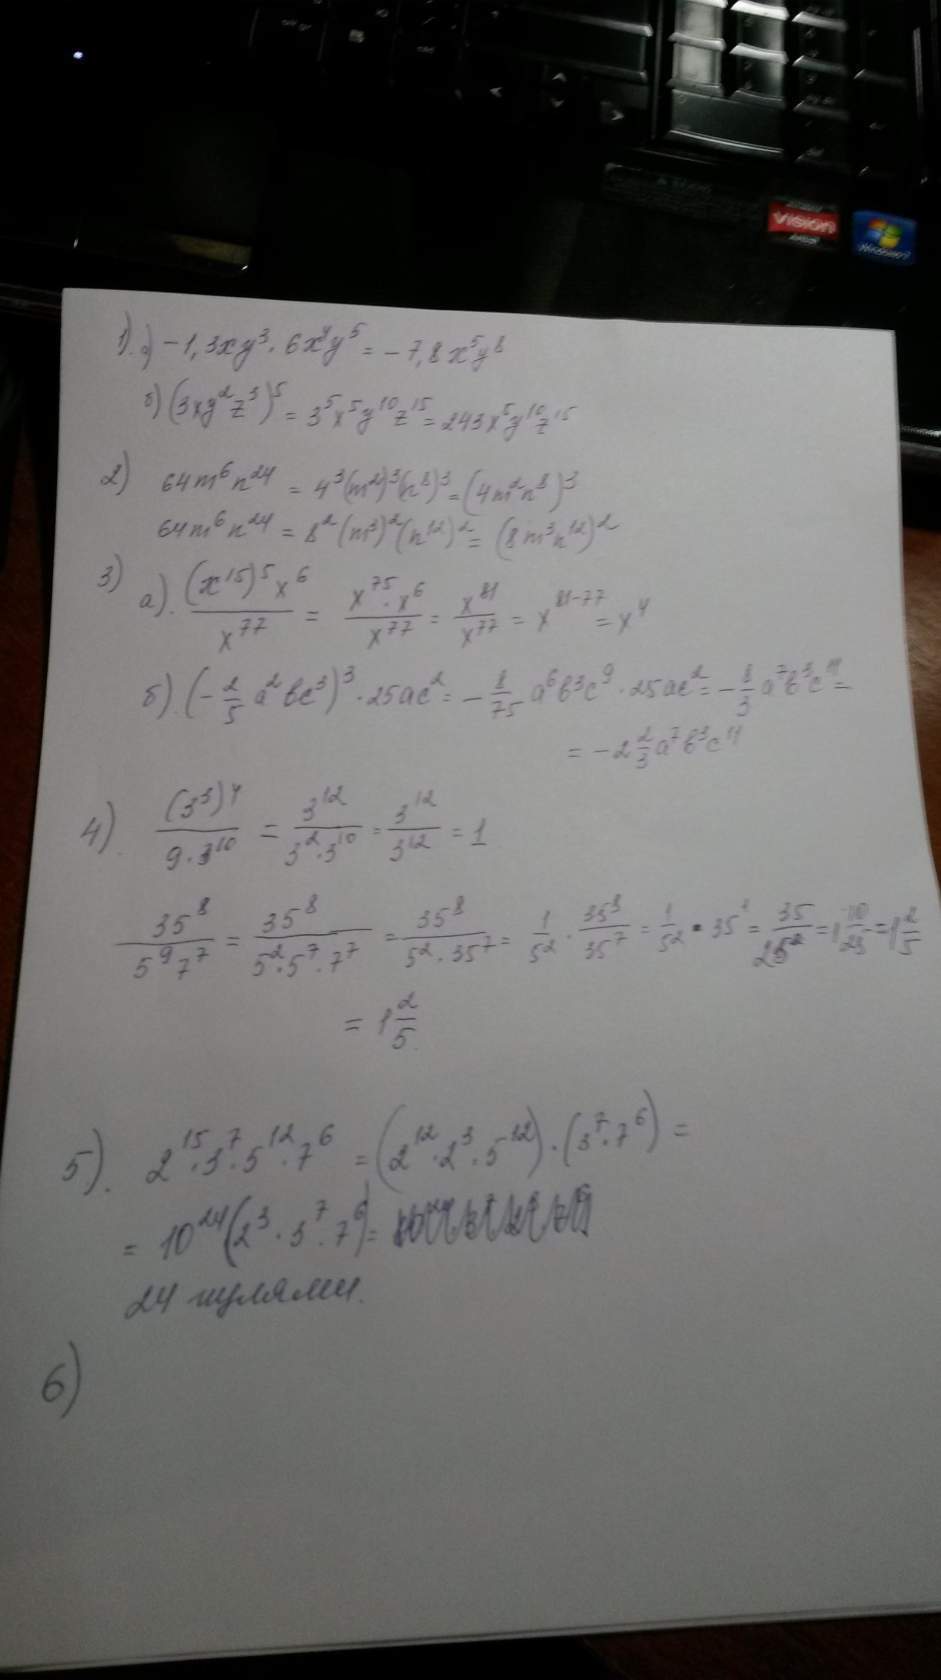 VISION
AMD
Windows 7
1). а) -1,3xy³ · 6x⁴y⁵ = -7,8x⁵y⁸
б) (3xy²z³)⁵ = 3⁵x⁵y¹⁰z¹⁵ = 243x⁵y¹⁰z¹⁵
2) 64m⁶n²⁴ = 4³(m²)³(n⁸)³ = (4m²n⁸)³
64m⁶n²⁴ = 8²(m³)²(n¹²)² = (8m³n¹²)²
3) а). (x¹⁵)⁵x⁶ / x⁷⁷ = x⁷⁵·x⁶ / x⁷⁷ = x⁸¹ / x⁷⁷ = x⁸¹⁻⁷⁷ = x⁴
б) (-2/5 a²bc³)³ · 25ac² = -8/75 a⁶b³c⁹ · 25ac² = -8/3 a⁷b³c¹¹ =
= -2 2/3 a⁷b³c¹¹
4). (3³)⁴ / 9·3¹⁰ = 3¹² / 3²·3¹⁰ = 3¹² / 3¹² = 1
35⁸ / 5⁹7⁷ = 35⁸ / 5²·5⁷·7⁷ = 35⁸ / 5²·35⁷ = 1/5² · 35⁸/35⁷ = 1/5² · 35¹ = 35/25 = 1 10/25 = 1 2/5
= 1 2/5.
5). 2¹⁵·3⁷·5¹²·7⁶ = (2¹²·2³·5¹²)·(3⁷·7⁶) =
= 10²⁴(2³·3⁷·7⁶) =
24 нулями.
6)